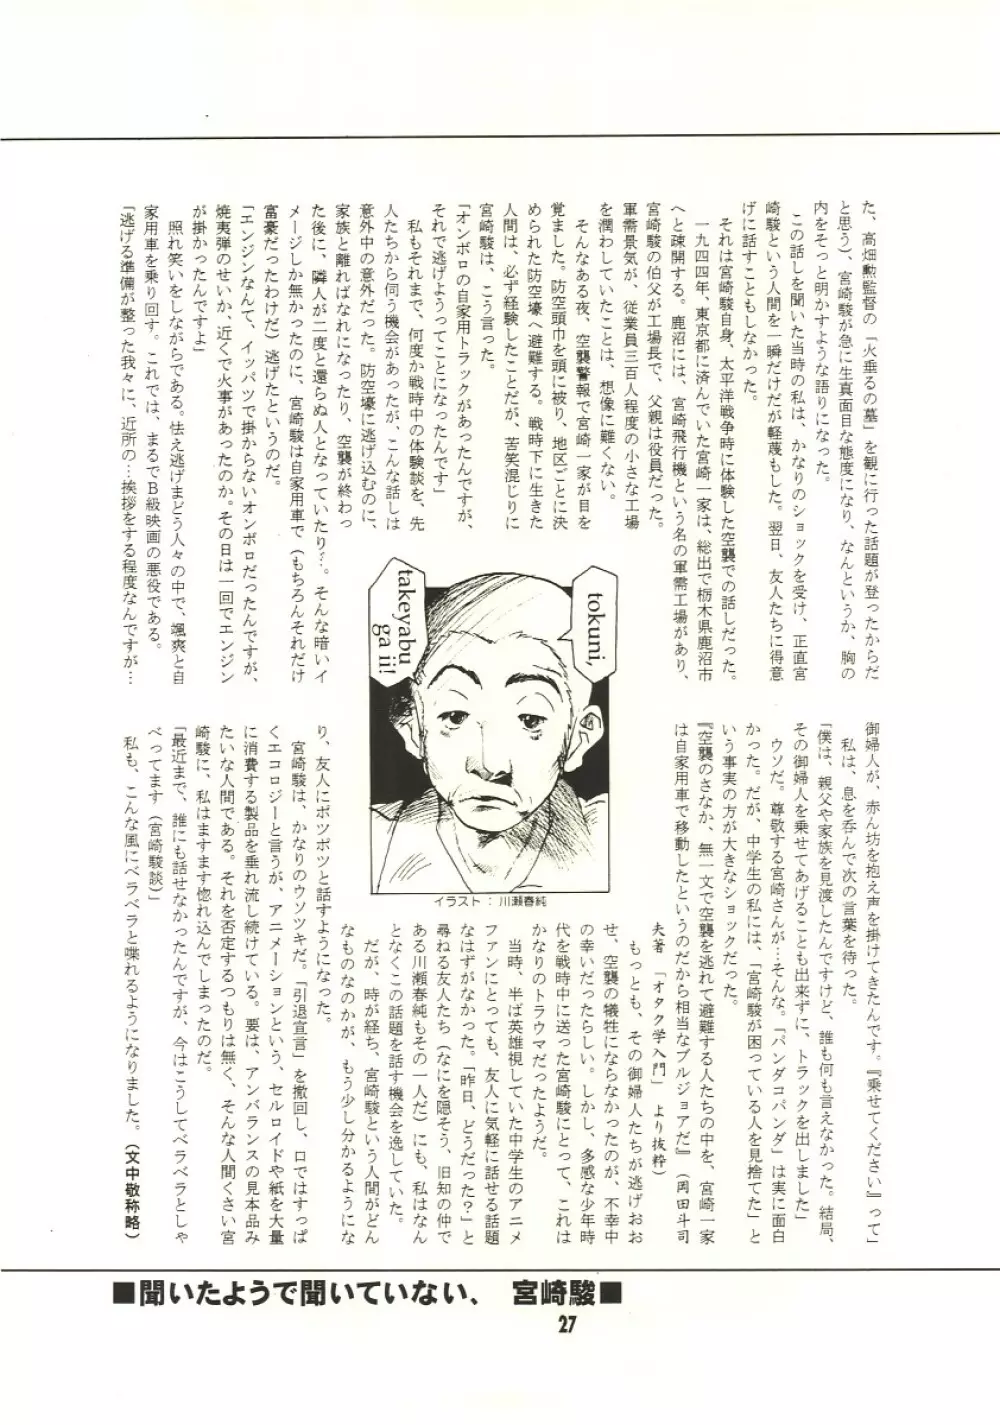 た、高畑勲監督の「火垂るの墓」を観に行った話題が登ったからだ
と思う)、宮崎駿が急に生真面目な態度になり、なんというか、胸の
内をそっと明かすような語りになった。
この話しを聞いた当時の私は、かなりのショックを受け、正直宮
崎駿という人間を一瞬だけだが軽蔑もした。翌日、友人たちに得意
げに話すこともしなかった。
それは宮崎駿自身、太平洋戦争時に体験した空襲での話しだった。
一九四四年、東京都に済んでいた宮崎一家は、総出で栃木県鹿沼市
へと疎開する。鹿沼には、宮崎飛行機という名の軍需工場があり、
宮崎駿の伯父が工場長で、父親は役員だった。
軍需景気が、従業員三百人程度の小さな工場
を潤わしていたことは、想像に難くない。
そんなある夜、空襲警報で宮崎一家が目を
覚ました。防空頭巾を頭に被り、地区ごとに決
められた防空壕へ避難する。戦時下に生きた
人間は、必ず経験したことだが、苦笑混じりに
宮崎駿は、こう言った。
「オンボロの自家用トラックがあったんですが、
それで逃げようってことになったんです」
私もそれまで、何度か戦時中の体験談を、先
人たちから伺う機会があったが、こんな話しは
意外中の意外だった。防空壕に逃げ込むのに、
家族と離ればなれになったり、空襲が終わっ
た後に、隣人が二度と還らぬ人となっていたり…。そんな暗いイ
メージしか無かったのに、宮崎駿は自家用車で(もちろんそれだけ
富豪だったわけだ)逃げたというのだ。
「エンジンなんて、イッパツで掛からないオンボロだったんですが、
焼夷弾のせいか、近くで火事があったのか。その日は一回でエンジン
が掛かったんですよ」
照れ笑いをしながらである。怯え逃げまどう人々の中で、颯爽と自
家用車を乗り回す。これでは、まるでB級映画の悪役である。
「逃げる準備が整った我々に、近所の…挨拶をする程度なんですが…
tokumi,
takeyabu
ga ii!
イラスト:川瀬春純
御婦人が、赤ん坊を抱え声を掛けてきたんです。『乗せてください』って」
私は、息を呑んで次の言葉を待った。
「僕は、親父や家族を見渡したんですけど、誰も何も言えなかった。結局、
その御婦人を乗せてあげることも出来ずに、トラックを出しました」
ウソだ。尊敬する宮崎さんが…そんな。「パンダコパンダ」は実に面白
かった。だが、中学生の私には、「宮崎駿が困っている人を見捨てた」と
いう事実の方が大きなショックだった。
『空襲のさなか、無一文で空襲を逃れて避難する人たちの中を、宮崎一家
は自家用車で移動したというのだから相当なブルジョアだ』(岡田斗司
夫著 「オタク学入門」より抜粋)
もっとも、その御婦人たちが逃げおお
せ、空襲の犠牲にならなかったのが、不幸中
の幸いだったらしい。しかし、多感な少年時
代を戦時中に送った宮崎駿にとって、これは
かなりのトラウマだったようだ。
当時、半ば英雄視していた中学生のアニメ
ファンにとっても、友人に気軽に話せる話題
なはずがなかった。「昨日、どうだった?」と
尋ねる友人たち(なにを隠そう、旧知の仲で
ある川瀬春純もその一人だ)にも、私はなん
となくこの話題を話す機会を逸していた。
だが、時が経ち、宮崎駿という人間がどん
なものなのかが、もう少し分かるようにな
り、友人にポツポツと話すようになった。
宮崎駿は、かなりのウソツキだ。「引退宣言」を撤回し、口ではすっぱ
くエコロジーと言うが、アニメーションという、セルロイドや紙を大量
に消費する製品を垂れ流し続けている。要は、アンバランスの見本品み
たいな人間である。それを否定するつもりは無く、そんな人間くさい宮
崎駿に、私はますます惚れ込んでしまったのだ。
「最近まで、誰にも話せなかったんですが、今はこうしてベラベラとしゃ
べってます(宮崎駿談)」
私も、こんな風にベラベラと喋れるようになりました。(文中敬称略)
■聞いたようで聞いていない、 宮崎駿■
27